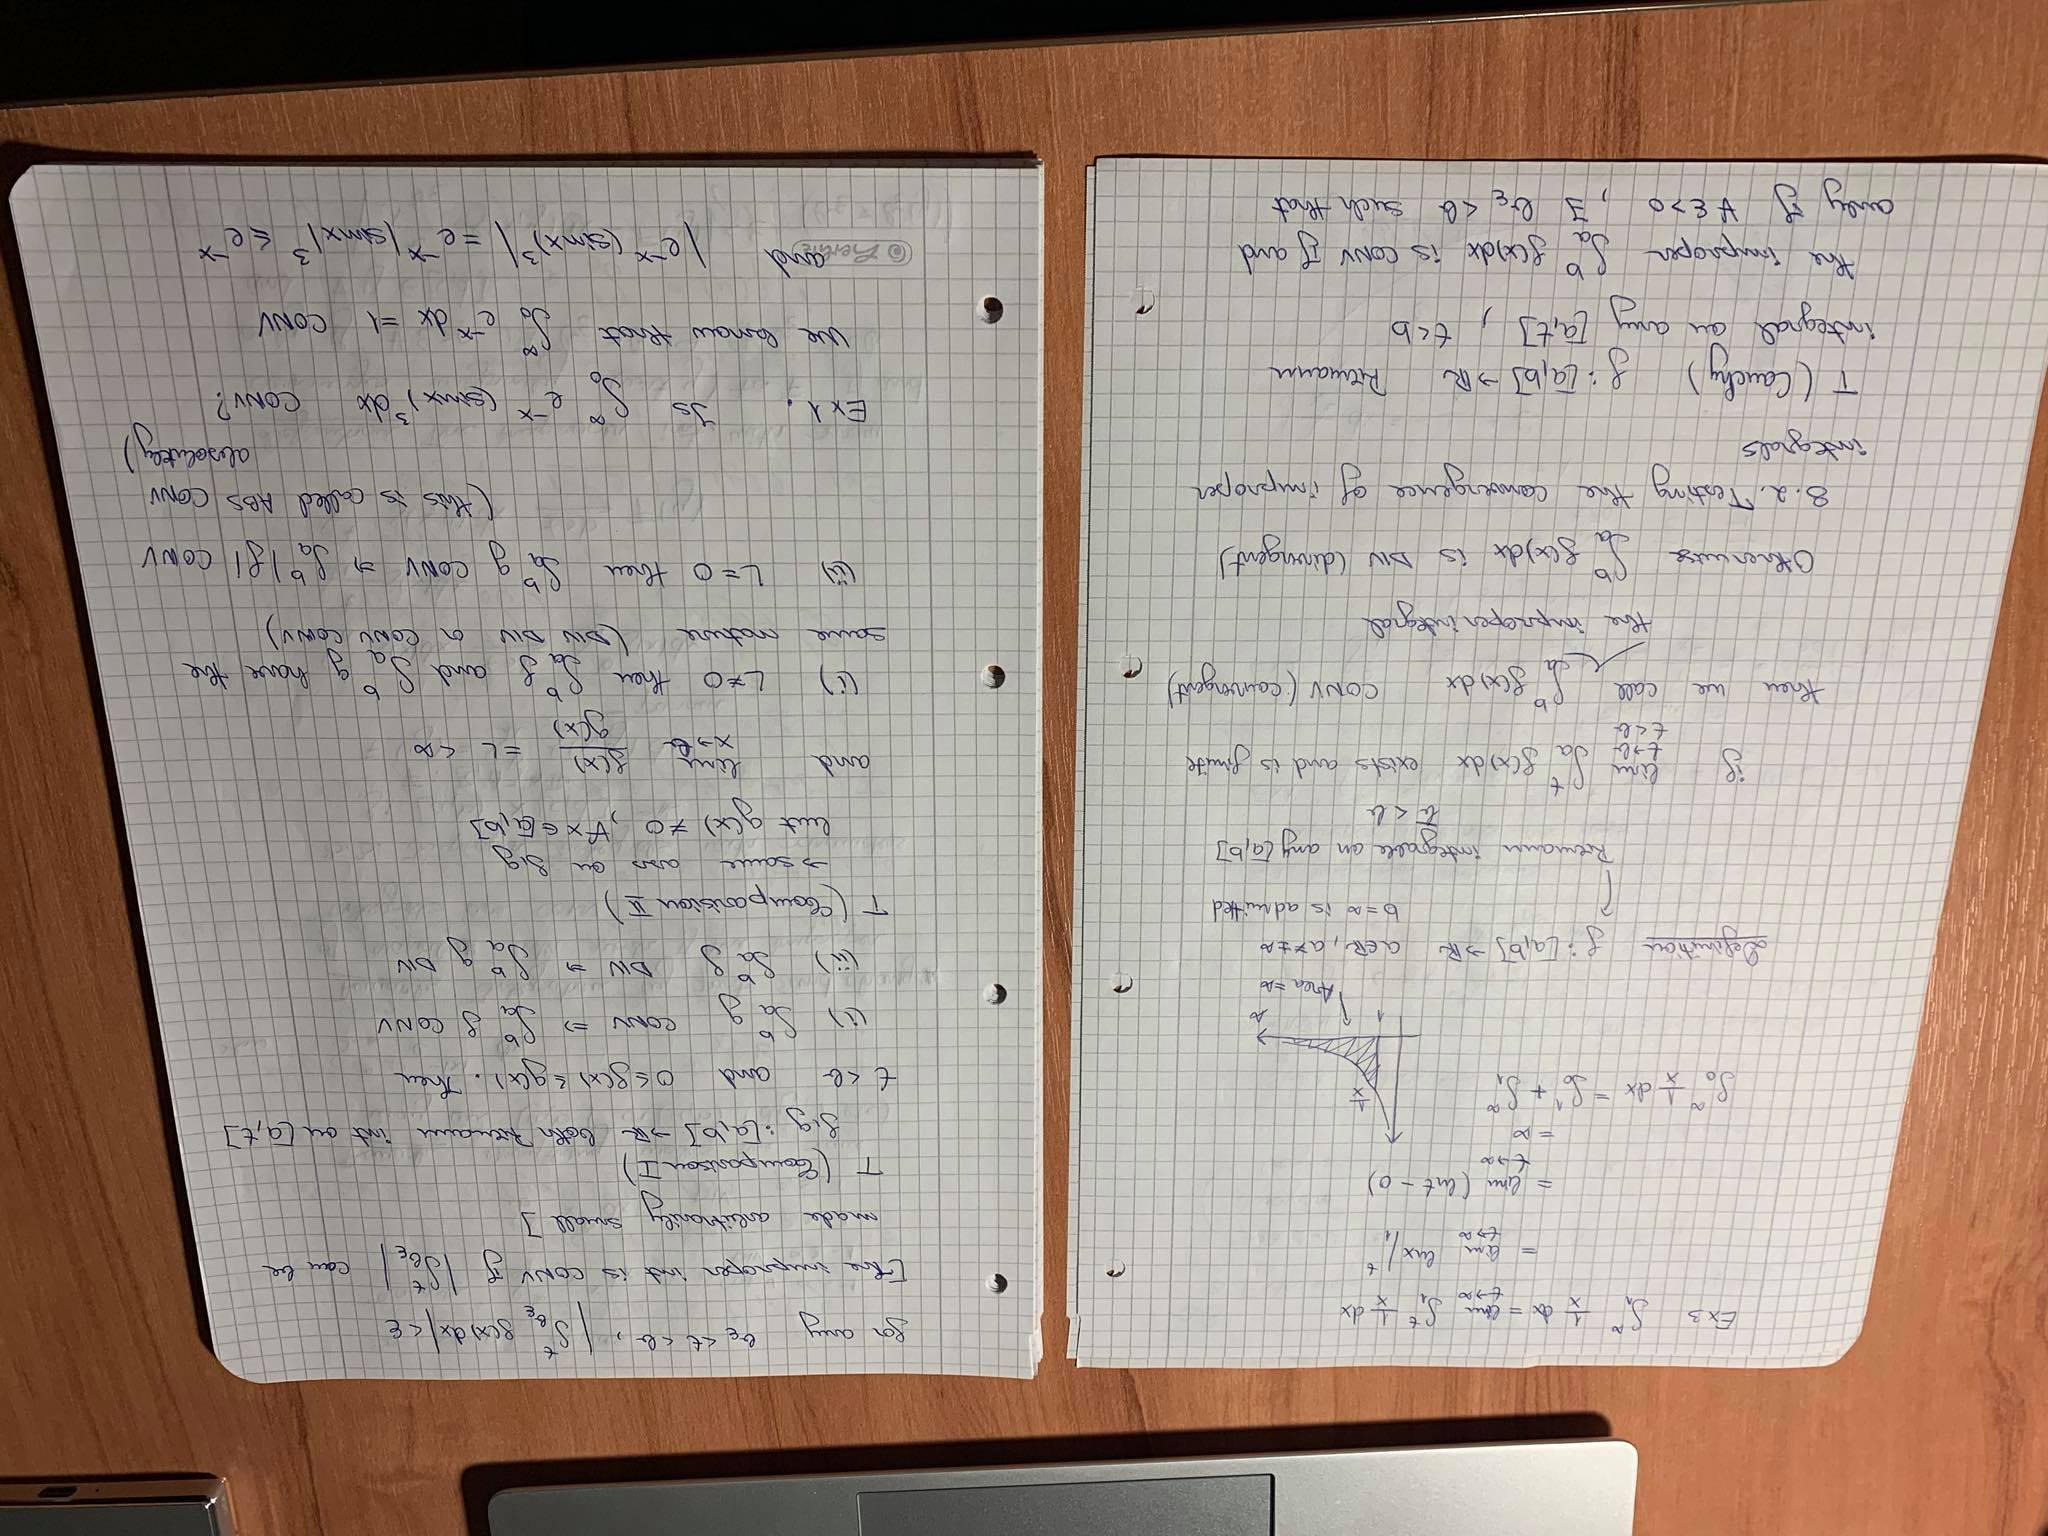 Ex3 ∫₁^∞ 1/x dx = lim t→∞ ∫₁^t 1/x dx
= lim t→∞ lnx |₁^t
= lim t→∞ (lnt - 0)
= ∞
∫₀^∞ 1/x dx = ∫₀^1 + ∫₁^∞
1/x
1 ∞
Area = ∞
Definition f : [a,b] → ℝ a∈ℝ, a≠±∞
b = ∞ is admitted
Riemann integrable on any [a,b̄]
b̄ < b
if lim t→b t<b ∫ₐ^t f(x)dx exists and is finite
then we call ∫ₐ^b f(x)dx CONV (convergent)
the improper integral
Otherwise ∫ₐ^b f(x)dx is DIV (divergent)
8.2. Testing the convergence of improper
integrals
T (Cauchy) f : [a,b] → ℝ Riemann
integral on any [a,t] , t<b
the improper ∫ₐ^b f(x)dx is CONV if and
only if ∀ε>0 , ∃ b_ε < b such that
for any b_ε < t < b , |∫_{b_ε}^t f(x)dx| < ε
[the improper int is CONV if |∫_{b_ε}^t| can be
made arbitrarily small]
T (Comparison I)
f,g : [a,b] → ℝ both Riemann int on [a,t]
t < b and 0 ≤ f(x) ≤ g(x). Then
(i) ∫ₐ^b g CONV ⇒ ∫ₐ^b f CONV
(ii) ∫ₐ^b f DIV ⇒ ∫ₐ^b g DIV
T (Comparision II)
→ same ass on f,g
but g(x) ≠ 0 , ∀x∈[a,b]
and lim x→b f(x)/g(x) = L < ∞
(i) L≠0 then ∫ₐ^b f and ∫ₐ^b g have the
same nature (DIV DIV or CONV CONV)
(ii) L=0 then ∫ₐ^b g CONV ⇒ ∫ₐ^b |f| CONV
(this is called ABS CONV
absolutely)
Ex 1. Is ∫₀^∞ e^{-x} (sinx)^3 dx CONV?
We know that ∫₀^∞ e^{-x} dx = 1 CONV
and |e^{-x} (sinx)^3| = e^{-x} |sinx|^3 ≤ e^{-x}